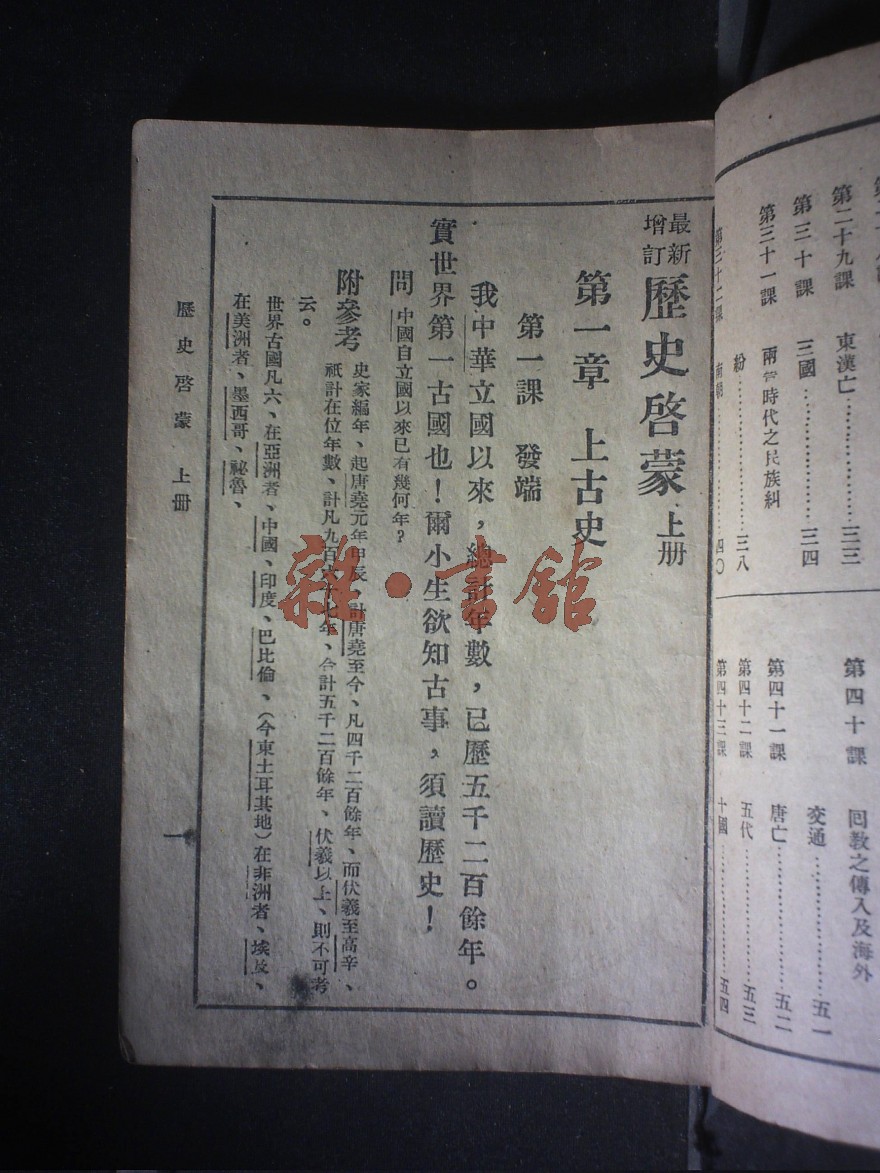 第二十九課 東漢亡……三三
第三十課 三國……三四
第三十一課 兩晉時代之民族糾
紛……三八
第三十二課 南朝……四〇
第四十課 回教之傳入及海外
交通……五一
第四十一課 唐亡……五二
第四十二課 五代……五三
第四十三課 十國……五四
最新增訂 歷史啓蒙 上册
第一章 上古史
第一課 發端
我中華立國以來,總計年數,已歷五千二百餘年。
實世界第一古國也!爾小生欲知古事,須讀歷史!
問 中國自立國以來已有幾何年?
附參考 史家編年、起唐堯元年甲辰、計唐堯至今、凡四千二百餘年、而伏羲至高辛、
祇計在位年數、計凡九百六十七年、合計五千二百餘年、伏羲以上、則不可考
云。
世界古國凡六、在亞洲者、中國、印度、巴比倫、(今東土耳其地)在非洲者、埃及、
在美洲者、墨西哥、祕魯、
歷史啓蒙 上册
一
雜·書館